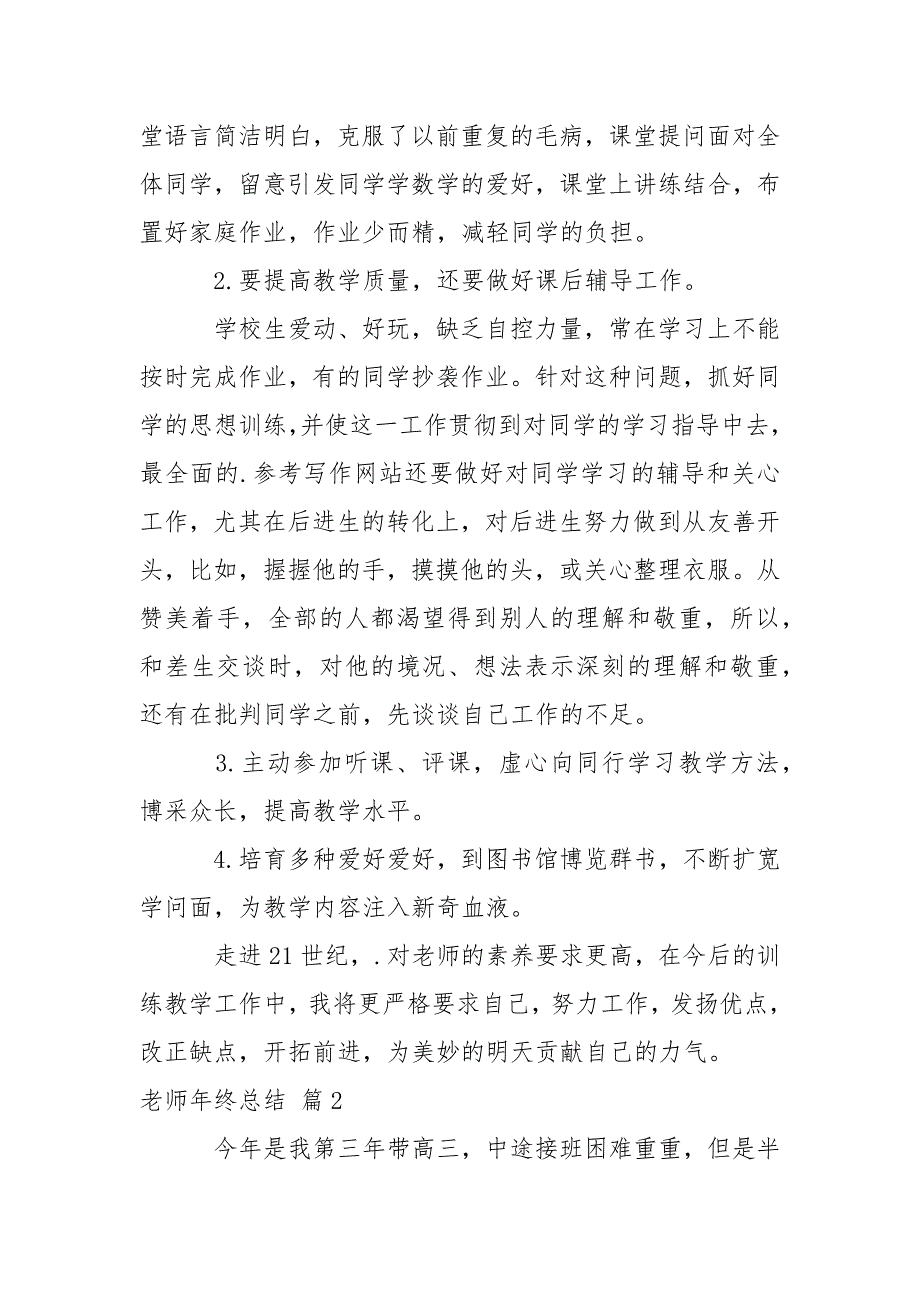 堂语言简洁明白，克服了以前重复的毛病，课堂提问面对全
体同学，留意引发同学学数学的爱好，课堂上讲练结合，布
置好家庭作业，作业少而精，减轻同学的负担。
2.要提高教学质量，还要做好课后辅导工作。
学校生爱动、好玩，缺乏自控力量，常在学习上不能
按时完成作业，有的同学抄袭作业。针对这种问题，抓好同
学的思想训练，并使这一工作贯彻到对同学的学习指导中去，
最全面的.参考写作网站还要做好对同学学习的辅导和关心
工作，尤其在后进生的转化上，对后进生努力做到从友善开
头，比如，握握他的手，摸摸他的头，或关心整理衣服。从
赞美着手，全部的人都渴望得到别人的理解和敬重，所以，
和差生交谈时，对他的境况、想法表示深刻的理解和敬重，
还有在批判同学之前，先谈谈自己工作的不足。
3.主动参加听课、评课，虚心向同行学习教学方法，
博采众长，提高教学水平。
4.培育多种爱好爱好，到图书馆博览群书，不断扩宽
学问面，为教学内容注入新奇血液。
走进 21 世纪，.对老师的素养要求更高，在今后的训
练教学工作中，我将更严格要求自己，努力工作，发扬优点，
改正缺点，开拓前进，为美妙的明天贡献自己的力气。
老师年终总结 篇2
今年是我第三年带高三，中途接班困难重重，但是半